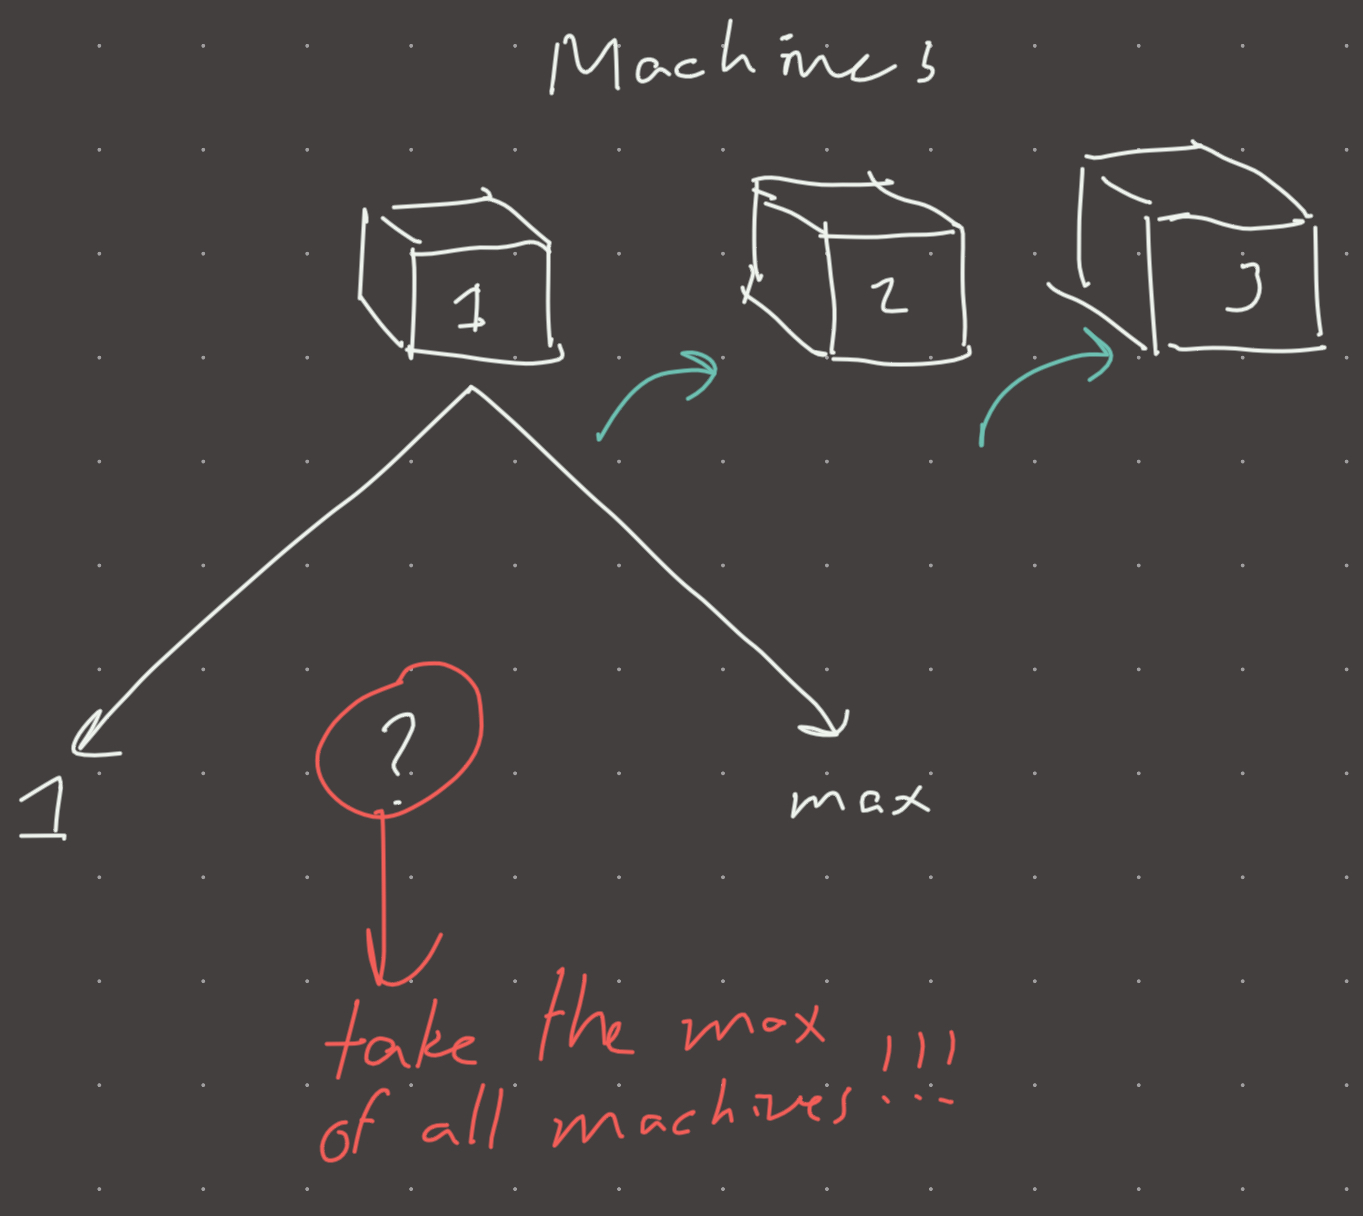 Machines
1
2
3
1
?
max
take the max
of all machines!!!